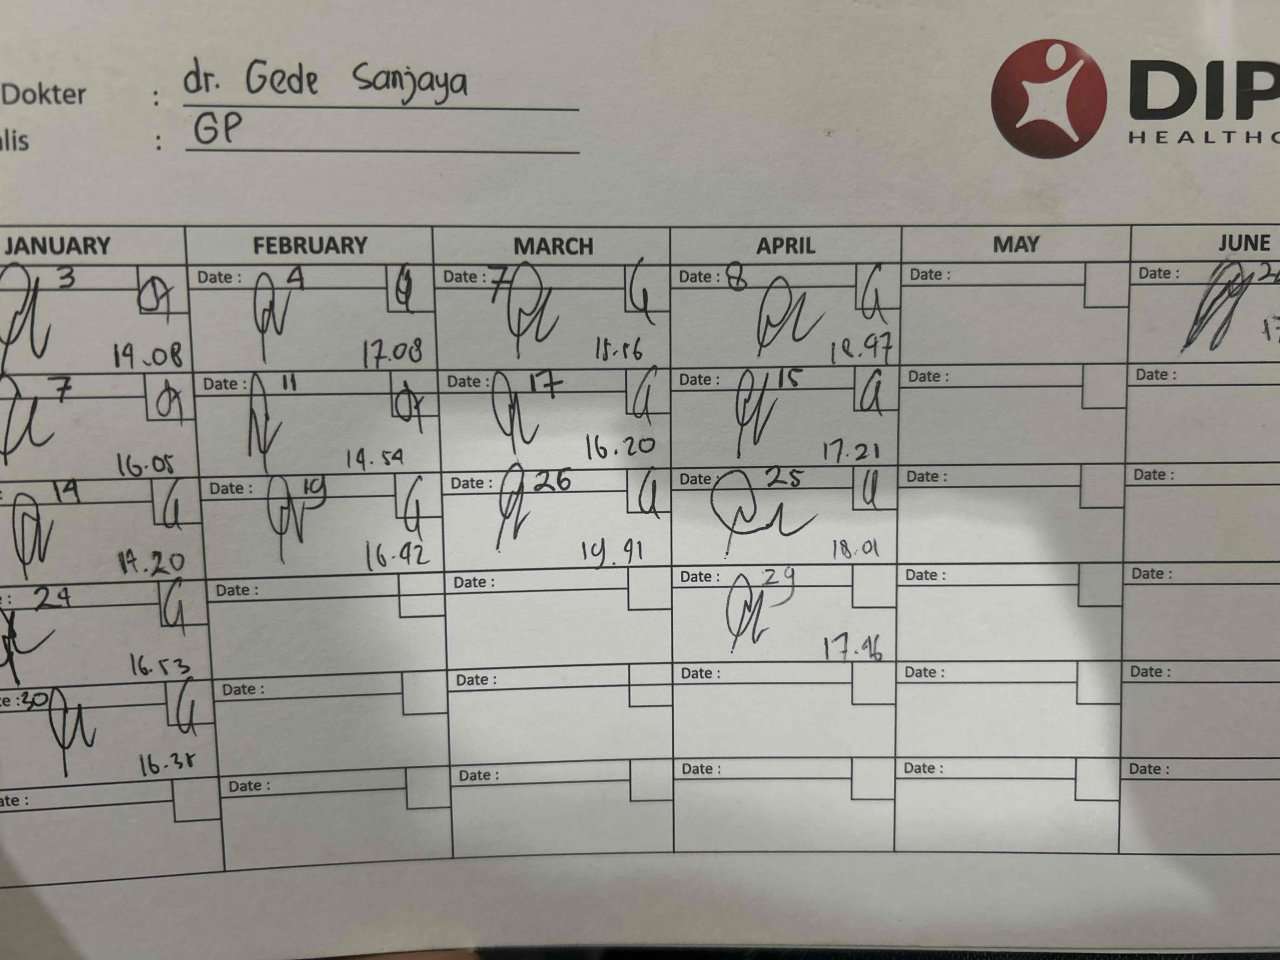 Dokter : dr. Gede Sanjaya
alis : GP
DIP
HEALTHC
JANUARY FEBRUARY MARCH APRIL MAY JUNE
3 Date : 4 Date : 7 Date : 8 Date : Date :
14.08 17.08
7 Date : 11 Date : 17 Date : 15 Date : Date :
16.05 14.54 16.20 17.21
14 Date : 19 Date : 26 Date : 25 Date : Date :
17.20 16.42 19.41 18.01
: 24 Date : Date : Date : 29 Date : Date :
16.53 17.46
te : 30 Date : Date : Date : Date : Date :
16.38
ate : Date : Date : Date : Date : Date :